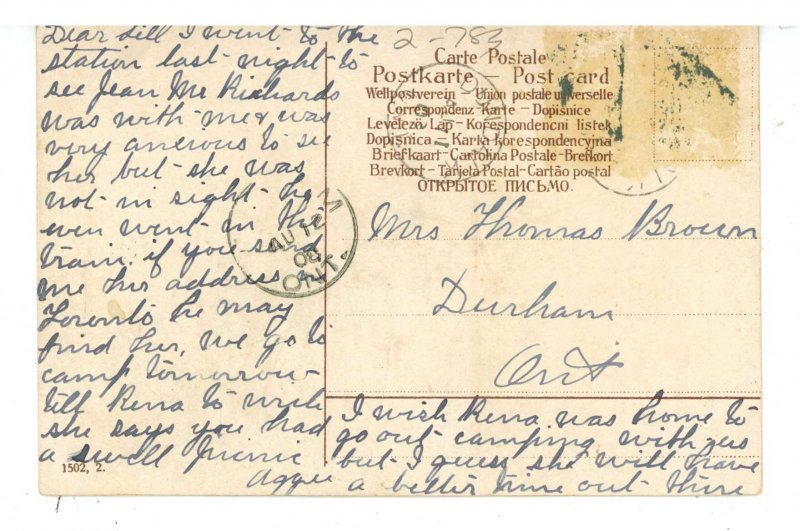 Dear Lill I went to the
station last night to
see Jean Mc Richards
was with me & was
very ancious to see
her but she was
not in sight he
even went in the
train if you send
me her address in
Toronto he may
find her, we go to
camp tomorrow
tell Rena to
she says you had
a swell picnic
Aggie
1502, 2.
2-783
Carte Postale
Postkarte – Post card
Weltpostverein – Union postale universelle
Correspondenz-Karte – Dopisnice
Levelező Lap – Korespondencni listek
Dopisnica – Karta korespondencyjna
Briefkaart – Cartolina Postale – Brefkort
Brevkort – Tarjeta Postal – Cartão postal
ОТКРЫТОЕ ПИСЬМО.
AU 12
08
ONT.
Mrs Thomas Brown
Durham
Ont
I wish Rena was home to
go out camping with us
but I guess she will have
a better time out there